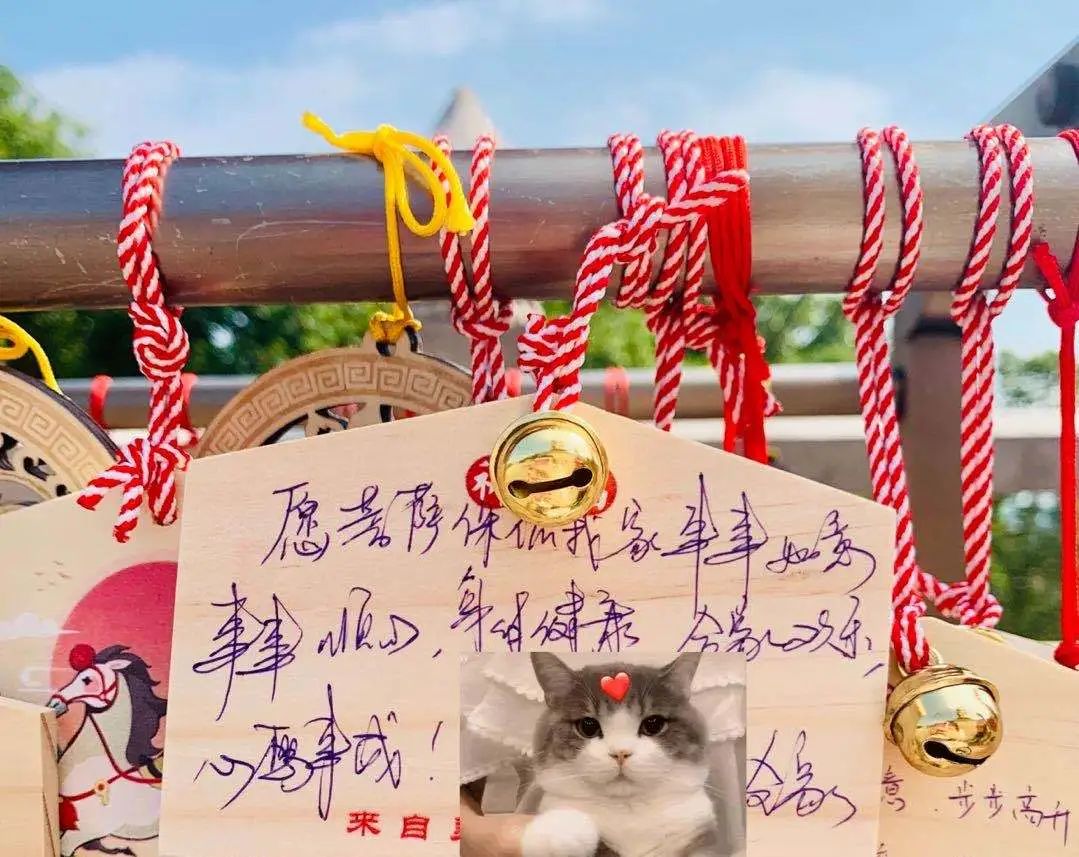 愿菩萨保佑我家事事如意
事事顺心,身体健康 合家欢乐,
心想事成!
来自
意.步步高升